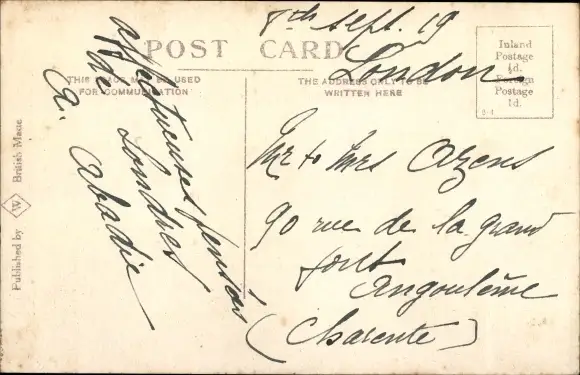 8th Sept. 19
London
POST CARD
THIS SPACE MAY BE USED
FOR COMMUNICATION
THE ADDRESS ONLY TO BE
WRITTEN HERE
Inland
Postage
½d.
Foreign
Postage
1d.
Published by W British Made
affectueuses pensées
de Londres
A. Abadie
Mr & Mrs Azens
90 rue de la grand
font
Angoulême
(Charente)